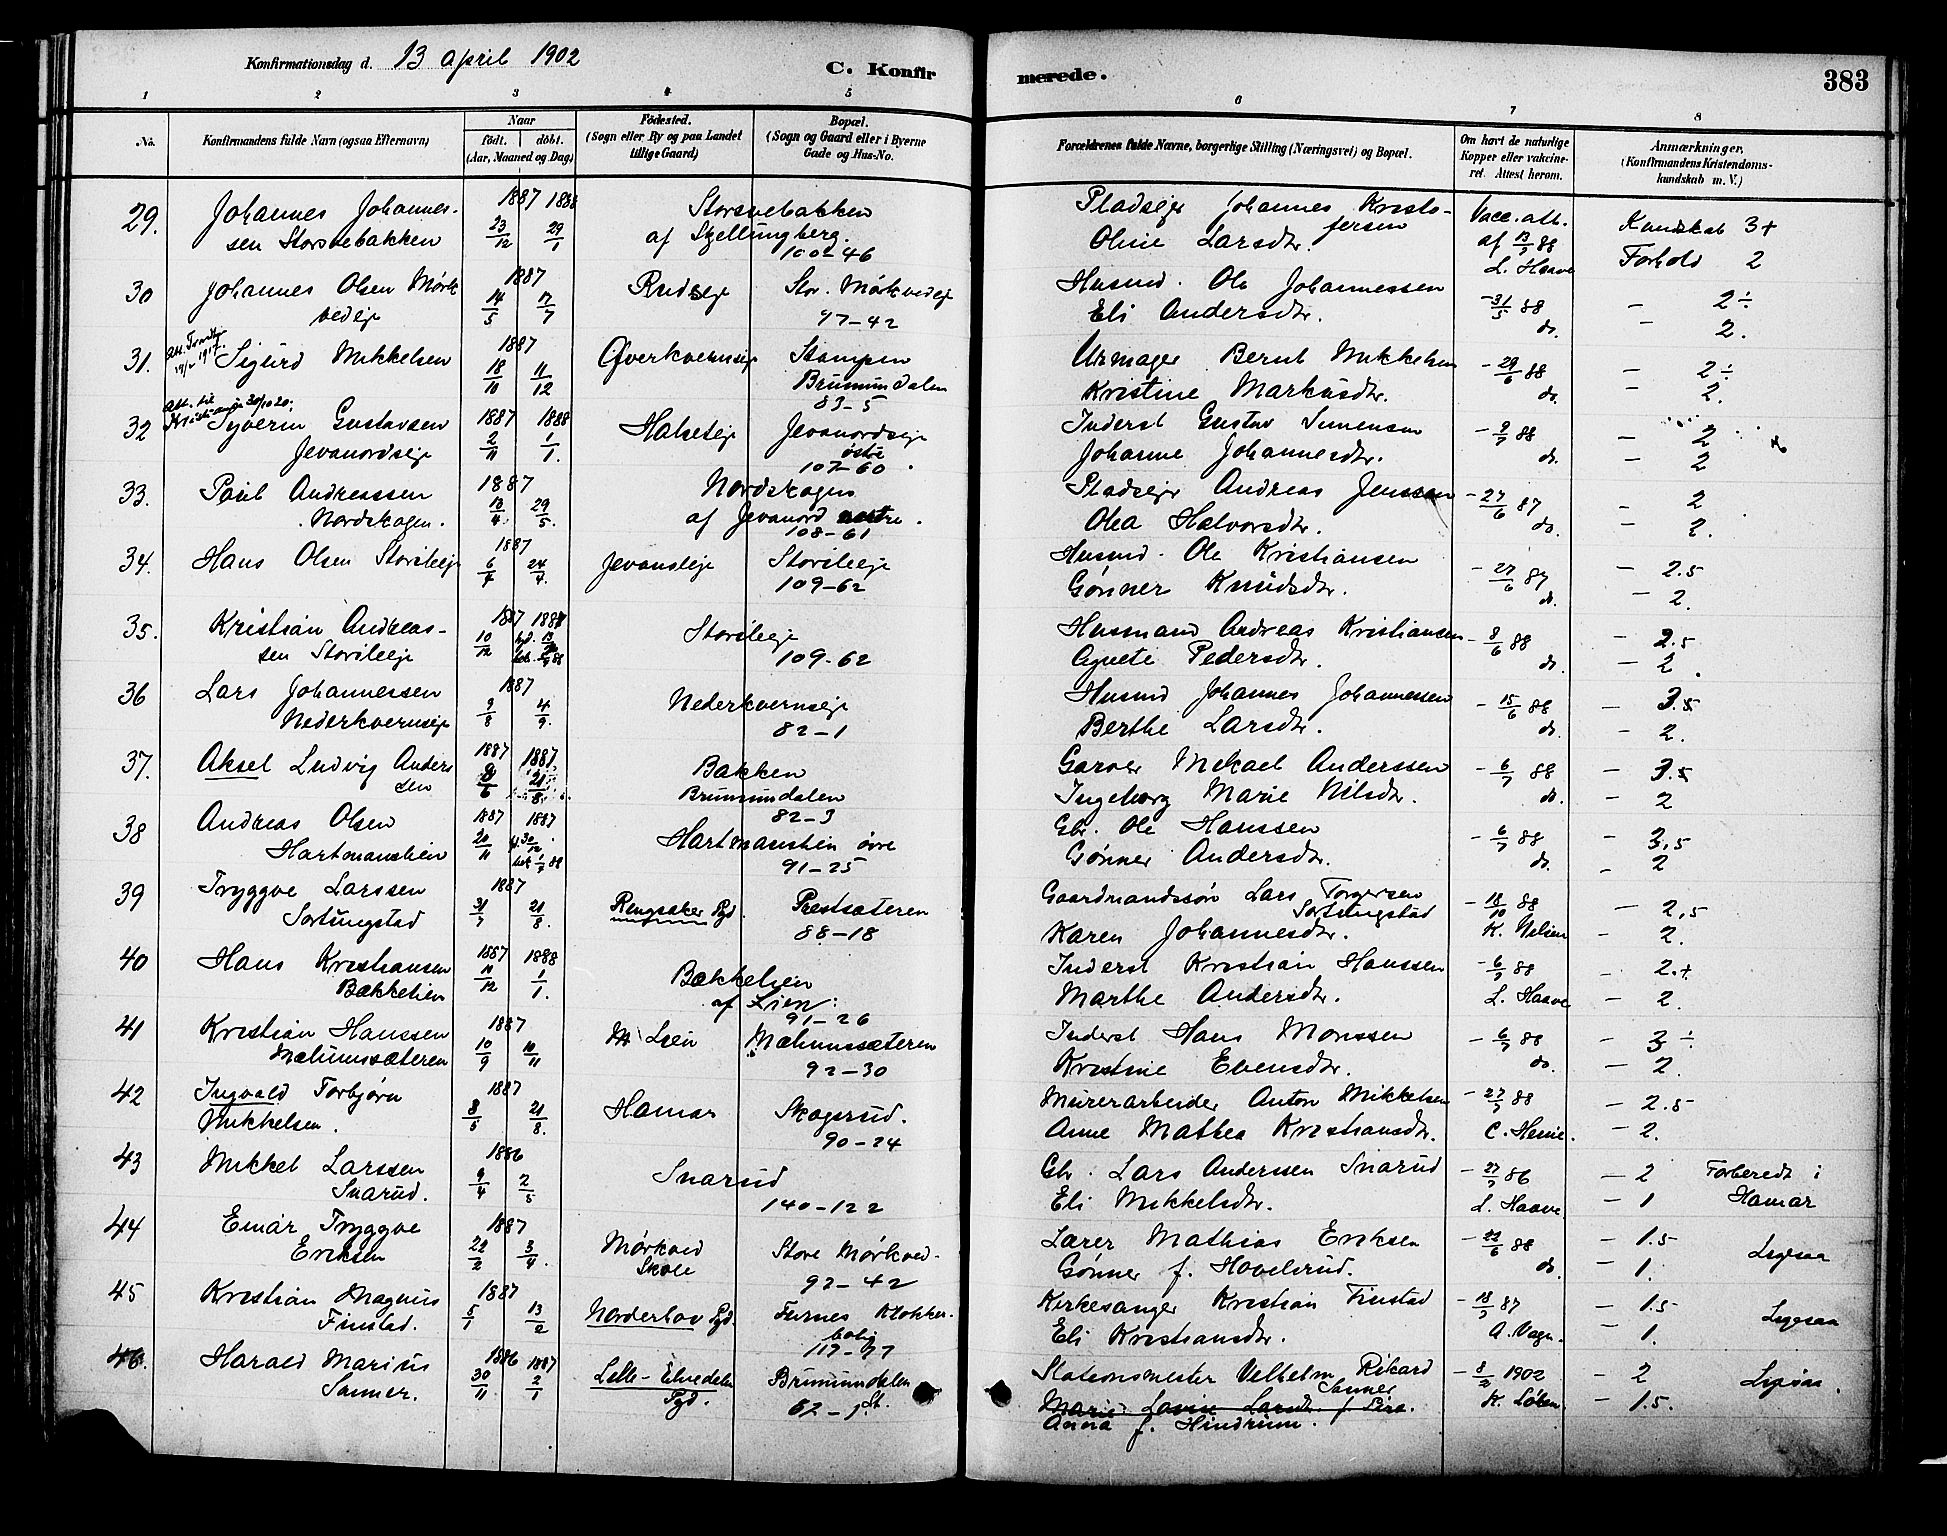 Konfirmationsdag d. 13 April 1902
C. Konfirmerede.
383
1 2 3 4 5 6 7 8
No. Konfirmandens fulde Navn (ogsaa Efternavn) Naar født. døbt. (Aar, Maaned og Dag) Fødested. (Sogn eller By og paa Landet tillige Gaard) Bopæl. (Sogn og Gaard eller i Byerne Gade og Hus-No. Forældrenes fulde Navne, borgerlige Stilling (Næringsvei) og Bopæl. Om havt de naturlige Kopper eller vaccineret. Attest herom. Anmærkninger, (Konfirmandens Kristendomskundskab m. V.)
29. Johannes Johannes- 1887 1888 Pladsejer Johannes Kristo- Vacc. att. Kundskab 3+
sen Storsvebakken 23/12 29/1 Storsvebakken af Skjellungberg. 100-46 fersen Oline Larsdtr. af 13/7 88 L. Haave Forhold 2
30 Johannes Olsen Mørk 1887 Rudseje Stor. Mørkvedeje Husmd. Ole Johannessen - 31/5 88 - 2÷
vedeje 14/5 17/7 97-42 Eli Andersdtr. do. - 2.
31. Sigurd Mikkelsen 1887 Øverkvernseje Stampen Urmager Bernt Mikkelsen - 29/6 88 - 2÷
18/10 11/12 Brumundalen 83-5 Kristine Markusdtr. do. - 2.
32 Syverin Gustavsen 1887 1888 Halseteje Jevanordseje Inderst Gustav Simensen - 9/7 88 - 2
Jevanordseje 2/11 1/1. østre 107-60. Johanne Johannesdtr. do. - 2
33. Paul Andreassen 1887 Nordskogen Pladsejer Andreas Jenssen - 27/6 87 - 2
Nordskogen. 13/4 29/5. af Jevanord østre. 108-61 Olea Halvorsdtr. do. - 2.
34. Hans Olsen Storileeje 1887 Jevansleje Storileeje Husmd. Ole Kristiansen - 27/6 87 - 2.5
6/4 24/4. 109-62 Gønner Knudsdtr. do. - 2.
35. Kristian Andreas- 1887 1887 Storileeje Husmand Andreas Kristiansen - 8/6 88 - 2.5
sen Storileeje 10/12 109-62 Agnete Pedersdtr. do. - 2.
36 Lars Johannessen 1887 Nederkvernseje Husmd Johannes Johannessen - 15/6 88 - 3.5
Nederkvernseje 9/8 4/9. 82-1 Berthe Larsdtr. do. - 2.
37. Aksel Ludvig Anders 1887 1887 Bakken Garver Mikael Anderssen - 6/7 88 - 3.5
sen 8/6 21/8. Brumundalen 82-3 Ingeborg Marie Nilsdtr. do. - 2
38 Andreas Olsen 1887 1887 Hartmanslien øvre Gbr. Ole Hanssen - 6/7 88 - 3,5
Hartmanslien 20/11 91-25 Gønner Andersdtr. do. - 2
39 Tryggve Larssen 1887 Ringsaker Pgd. Prestsæteren Gaardmandssøn Lars Torgersen - 18/10 88 - 2,5
Sortungstad 31/7 21/8. 88-18 Sortungstad Karen Johannesdtr. K. Nilsen - 2.
40 Hans Kristiansen 1887 1888 Bækkelien Inderst Kristian Hanssen - 6/7 88 - 2.+
Bækkelien 11/12 1/1. af Lien. 91-26 Marthe Andersdtr. L. Haave - 2.
41 Kristian Hanssen 1887 Lien Mælumssæteren Inderst Hans Monssen - 6/7 88 - 3÷
Mælumssæteren 10/9 10/11 92-30 Kristine Evensdtr. do. - 2.
42 Ingvald Torbjørn 1887 Hamar Skogsrud. Murerarbeider Anton Mikkelsen - 27/7 88 - 2.5
Mikkelsen. 8/5 21/8. 90-24 Anne Mathea Kristiansdtr. - 2.
43 Mikkel Larssen 1886 Snarud Gbr. Lars Anderssen Snarud - 27/7 86 - 2 Forberedt i
Snarud. 9/4 2/5 140-122 Eli Mikkelsdtr. L. Haave. - 1 Hamar
44 Einar Tryggve 1887 Mørkved Store Mørkved. Lærer Mathias Eriksen - 22/6 88 - 1.5 Ligesaa
Eriksen 22/2 3/4. Skole 92-42 Gønner f. Hovelsrud. do. - 1.
45 Kristian Magnus 1887 Norderhov Pgd. Furnes Klokker- Kirkesanger Kristian Finstad - 18/7 87 - 1.5 Ligesaa
Finstad. 5/1 13/2 bolig 117-77 Eli Kristiansdtr. A. Vagn. - 1.
46. Harald Marius 1886 1887 Lille-Elvedalen Brumundalen Stationsmester Velhelm Rikard - 8/2 1902 - 2 Ligesaa.
Sanner. 30/11 2/1 Pgd. St. 62-1. Sanner K. Løken - 1.5.
Anna f. Hindrum.